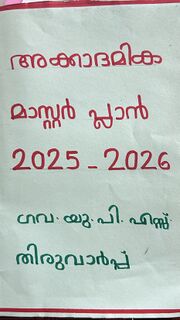 അക്കാദമിക
മാസ്റ്റർ പ്ലാൻ
2025-2026
ഗവ. യു. പി. എസ്സ്
തിരുവാർപ്പ്